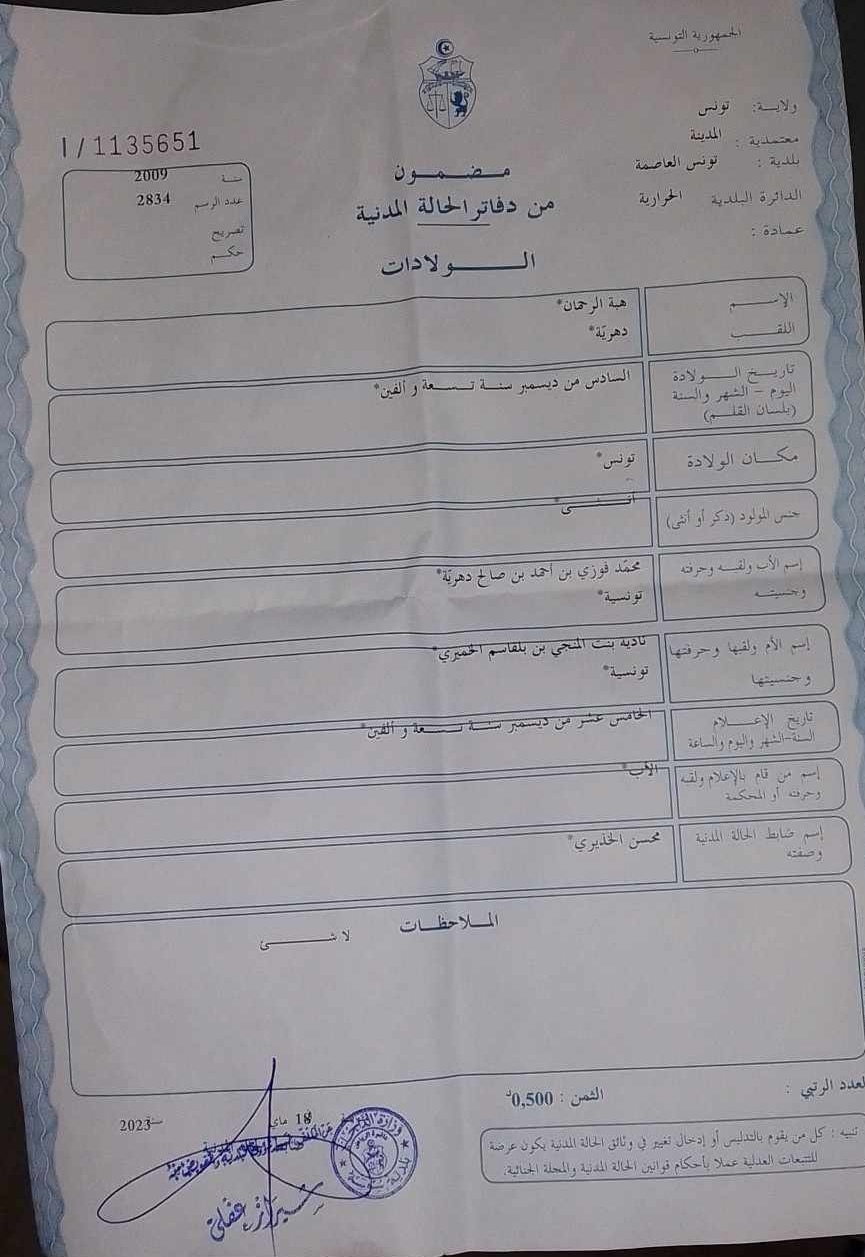 الجمهورية التونسية
ولاية: تونس
معتمدية : المدينة
بلدية : تونس العاصمة
الدائرة البلدية الحرارية
عمادة :
I / 1135651
سنة 2009
عدد الرسم 2834
تصريح
حكم
مضمون
من دفاتر الحالة المدنية
الولادات
الإسم هبة الرحمان*
اللقب دهريّة*
تاريخ الولادة السادس من ديسمبر سنة تسعة و ألفين*
اليوم - الشهر والسنة
(بلسان القلم)
مكان الولادة تونس*
جنس المولود (ذكر أو أنثى) أنثى*
إسم الأب ولقبه وحرفته محمّد فوزي بن أحمد بن صالح دهريّة*
وجنسيته تونسية*
إسم الأم ولقبها وحرفتها نادية بنت المنجي بن بلقاسم الخميري*
وجنسيتها تونسية*
تاريخ الإعلام الخامس عشر من ديسمبر سنة تسعة و ألفين*
السنة-الشهر واليوم والساعة
إسم من قام بالإعلام ولقبه الأب*
وحرفته أو المحكمة
إسم ضابط الحالة المدنية محسن الخذيري*
وصفته
الملاحظات
لا شئ
العدد الرتبي :
الثمن : 0,500د
18 ماي سنة 2023
تنبيه : كل من يقوم بالتدليس أو إدخال تغيير في وثائق الحالة المدنية يكون عرضة
للتتبعات العدلية عملا بأحكام قوانين الحالة المدنية والمجلة الجنائية.